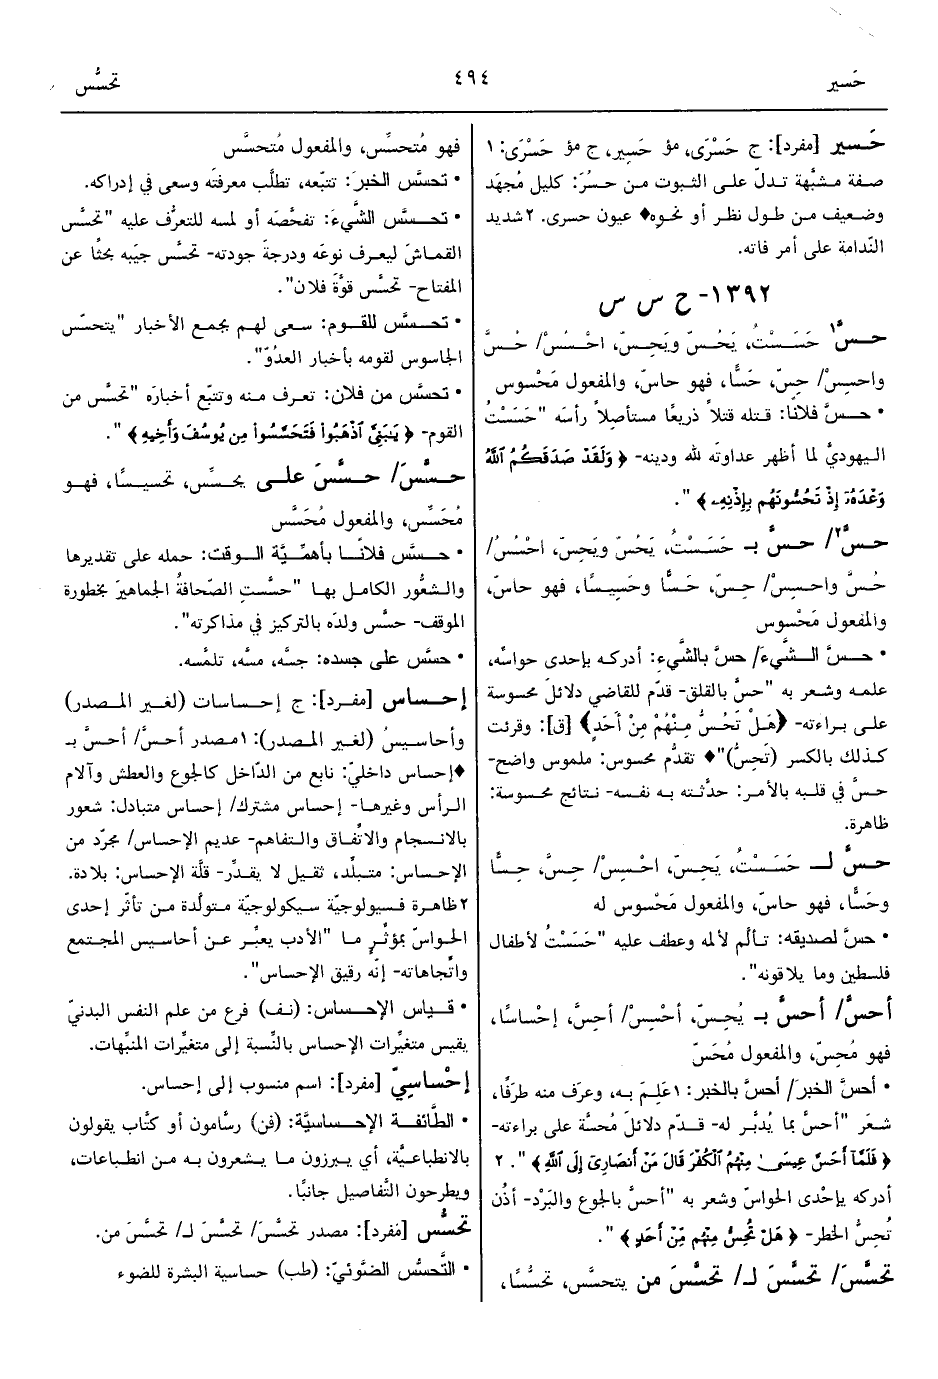 حَسير
٤٩٤
تحسُّس
حَسير [مفرد]: ج حَسْرَى، مؤ حَسِير، ج مؤ حَسْرَى: ١
صفة مشبَّهة تدلّ على الثبوت من حسُرَ: كليل مُجهَد
وضعيف من طول نظر أو نحوه♦ عيون حسرى. ٢ شديد
النّدامة على أمر فاته.
١٣٩٢- ح س س
حسَّ١ حَسَسْتُ، يَحُسّ ويَحِسّ، احْسُسْ/ حُسَّ
واحسِسْ/ حِسّ، حَسًّا، فهو حاسّ، والمفعول مَحْسوس
• حسَّ فلانًا: قتله قتلاً ذريعًا مستأصلاً رأسَه "حَسَسْتُ
اليهوديَّ لما أظهر عداوتَه لله ودينه- ﴿ وَلَقَدْ صَدَقَكُمُ اللَّهُ
وَعْدَهُ إِذْ تَحُسُّونَهُم بِإِذْنِهِ ﴾ ".
حسَّ٢/ حسَّ بـ حَسَسْتُ، يَحُسّ ويَحِسّ، احْسُسْ/
حُسَّ واحسِسْ/ حِسّ، حَسًّا وحَسِيسًا، فهو حاسّ،
والمفعول مَحْسوس
• حسَّ الشَّيءَ/ حسَّ بالشَّيءِ: أدركه بإحدى حواسّه،
علمه وشعر به "حسَّ بالقلق- قدّم للقاضي دلائلَ محسوسة
على براءته- ﴿هَلْ تَحُسُّ مِنْهُمْ مِنْ أَحَدٍ﴾ [ق]: وقرئت
كذلك بالكسر (تَحِسُّ)"♦ تقدُّم محسوس: ملموس واضح-
حسَّ في قلبه بالأمر: حدَّثته به نفسه- نتائج محسوسة:
ظاهرة.
حسَّ لـ حَسَسْتُ، يَحِسّ، احْسِسْ/ حِسّ، حِسًّا
وحَسًّا، فهو حاسّ، والمفعول مَحْسوس له
• حسَّ لصديقه: تألَّم لألمه وعطف عليه "حَسَسْتُ لأطفال
فلسطين وما يلاقونه".
أحسَّ/ أحسَّ بـ يُحِسّ، أحْسِسْ/ أحِسّ، إحْساسًا،
فهو مُحِسّ، والمفعول مُحَسّ
• أحسَّ الخبرَ/ أحسَّ بالخبر: ١ عَلِمَ به، وعرَف منه طرَفًا،
شعَر "أحسَّ بما يُدبَّر له- قدّم دلائلَ مُحسَّة على براءته-
﴿ فَلَمَّا أَحَسَّ عِيسَى مِنْهُمُ الْكُفْرَ قَالَ مَنْ أَنصَارِي إِلَى اللَّهِ ﴾ ". ٢
أدركه بإحْدى الحواسّ وشعر به "أحسَّ بالجوع والبَرْد- أذن
تُحِسُّ الخطر- ﴿ هَلْ تُحِسُّ مِنْهُم مِّنْ أَحَدٍ ﴾ ".
تحسَّسَ/ تحسَّسَ لـ/ تحسَّسَ من يتحسَّس، تحسُّسًا،
فهو مُتحسِّس، والمفعول مُتحسَّس
• تحسَّس الخبرَ: تتبّعه، تطلَّب معرفتَه وسعى في إدراكه.
• تحسَّس الشَّيءَ: تفحّصَه أو لمسه للتعرُّف عليه "تحسَّس
القماشَ ليعرف نوعَه ودرجةَ جودته- تحسَّس جيبَه بحثًا عن
المفتاح- تحسَّس قوَّة فلان".
• تحسَّس للقوم: سعى لهم بجمع الأخبار "يتحسّس
الجاسوس لقومه بأخبار العدُوّ".
• تحسَّس من فلان: تعرف منه وتتبّع أخبارَه "تحسَّس من
القوم- ﴿ يَبَنِيَّ اذْهَبُوا فَتَحَسَّسُوا مِن يُوسُفَ وَأَخِيهِ ﴾ ".
حسَّسَ/ حسَّسَ على يحسِّس، تحسيسًا، فهو
مُحَسِّس، والمفعول مُحَسَّس
• حسَّس فلانًا بأهمّيَّة الوقت: حمله على تقديرها
والشعُّور الكامل بها "حسَّستِ الصّحافةُ الجماهيرَ بخطورة
الموقف- حسَّس ولدَه بالتركيز في مذاكرته".
• حسَّس على جسده: جسَّه، مسَّه، تلمَّسه.
إحساس [مفرد]: ج إحساسات (لغير المصدر)
وأحاسيسُ (لغير المصدر): ١ مصدر أحسَّ/ أحسَّ بـ
♦إحساس داخليّ: نابع من الدّاخل كالجوع والعطش وآلام
الرأس وغيرها- إحساس مشترك/ إحساس متبادل: شعور
بالانسجام والاتّفاق والتفاهم- عديم الإحساس/ مجرّد من
الإحساس: متبلّد، ثقيل لا يقدِّر- قلَّة الإحساس: بلادة.
٢ ظاهرة فسيولوجيَّة سيكولوجيَّة متولّدة من تأثّر إحدى
الحواسّ بمؤثِّرٍ ما "الأدب يعبِّر عن أحاسيس المجتمع
واتّجاهاته- إنَّه رقيق الإحساس".
• قياس الإحساس: (نف) فرع من علم النفس البدنيّ
يقيس متغيّرات الإحساس بالنّسبة إلى متغيّرات المنبِّهات.
إحْساسيّ [مفرد]: اسم منسوب إلى إحساس.
• الطَّائفة الإحساسيَّة: (فن) رسَّامون أو كتَّاب يقولون
بالانطباعيَّة، أي يبرزون ما يشعرون به من انطباعات،
ويطرحون التَّفاصيل جانبًا.
تحسُّس [مفرد]: مصدر تحسَّسَ/ تحسَّسَ لـ/ تحسَّسَ من.
• التَّحسُّس الضَّوئيّ: (طب) حساسية البشرة للضوء